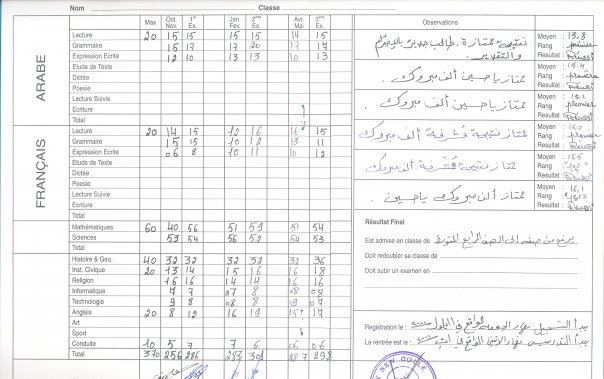 Nom Classe
Max Oct. Nov. 1er Ex. Jan. Fév. 2ème Ex. Avr. Mai 3ème Ex. Observations
ARABE
Lecture 20 15 15 15 15 14 15
Grammaire 15 17 17 20 17 17
Expression Ecrite 12 10 13 13 10 13
Etude de Texte
Dictée
Poesie
Lecture Suivie
Ecriture
Total
FRANÇAIS
Lecture 20 14 15 12 16 16 15
Grammaire 15 15 10 12 13 11
Expression Ecrite 06 8 10 11 10 12
Etude de Texte
Dictée
Poesie
Lecture Suivie
Ecriture
Total
Mathématiques 60 40 56 51 59 51 54
Sciences 53 54 56 52 54 53
Histoire & Geo. 40 32 32 32 32 32 36
Inst. Civique 20 13 14 15 16 16 18
Religion 16 16 14 14 16 16
Informatique 7 7 07 8 08 08
Technologie 9 8 08 8 09 07
Anglais 20 8 12 16 19 15 17
Art
Sport
Conduite 10 5 7 7 6 06 06
Total 370 256 286 298
نتيجة ممتازة. طالب جدير بالإحترام
والتقدير
Moyen : 13,8
Rang : premier
Resultat : Réussi
ممتاز يا حسين ألف مبروك
Moyen : 15.4
Rang :
Resultat : Réussi
ممتاز يا حسين ألف مبروك
Moyen :
Rang : premier
Resultat : Réussi
ممتاز نتيجة مشرفة ألف مبروك
Moyen :
Rang : premier
Resultat : Réussi
ممتاز نتيجة مشرفة ألف مبروك
Moyen : 15.5
Rang :
Resultat : Réussi
ممتاز ألف مبروك يا حسين
Moyen : 16,1
Rang :
Resultat : Réussi
Résultat Final
Est admise en classe de إلى الصف الرابع المتوسط
Doit redoubler sa classe de
Doit subir un examen en
Registration le : يبدأ التسجيل نهار الجمعة الواقع في أيلول
La rentrée est le : يبدأ التدريس نهار الاثنين الواقع في